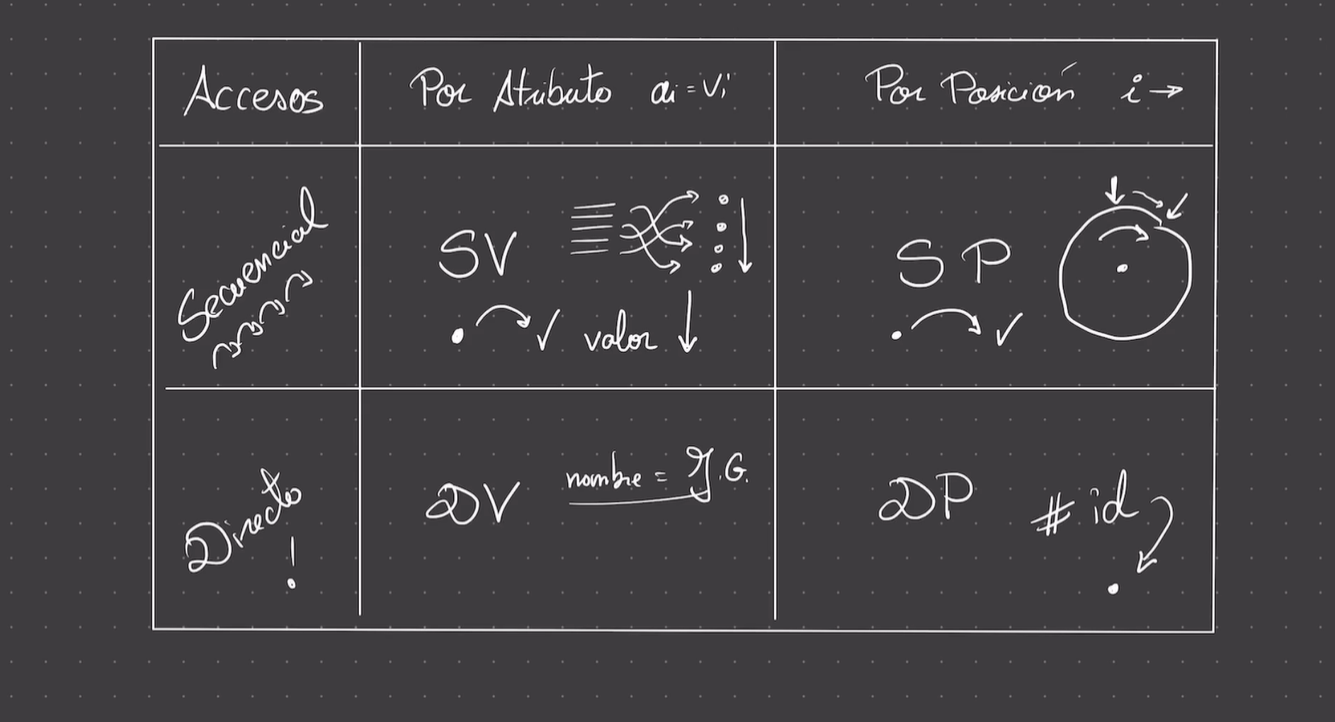 Accesos
Por Atributo ai = vi
Por Posición i →
Secuencial
SV
valor ↓
SP
Directo !
DV
nombre = J.G.
DP
# id